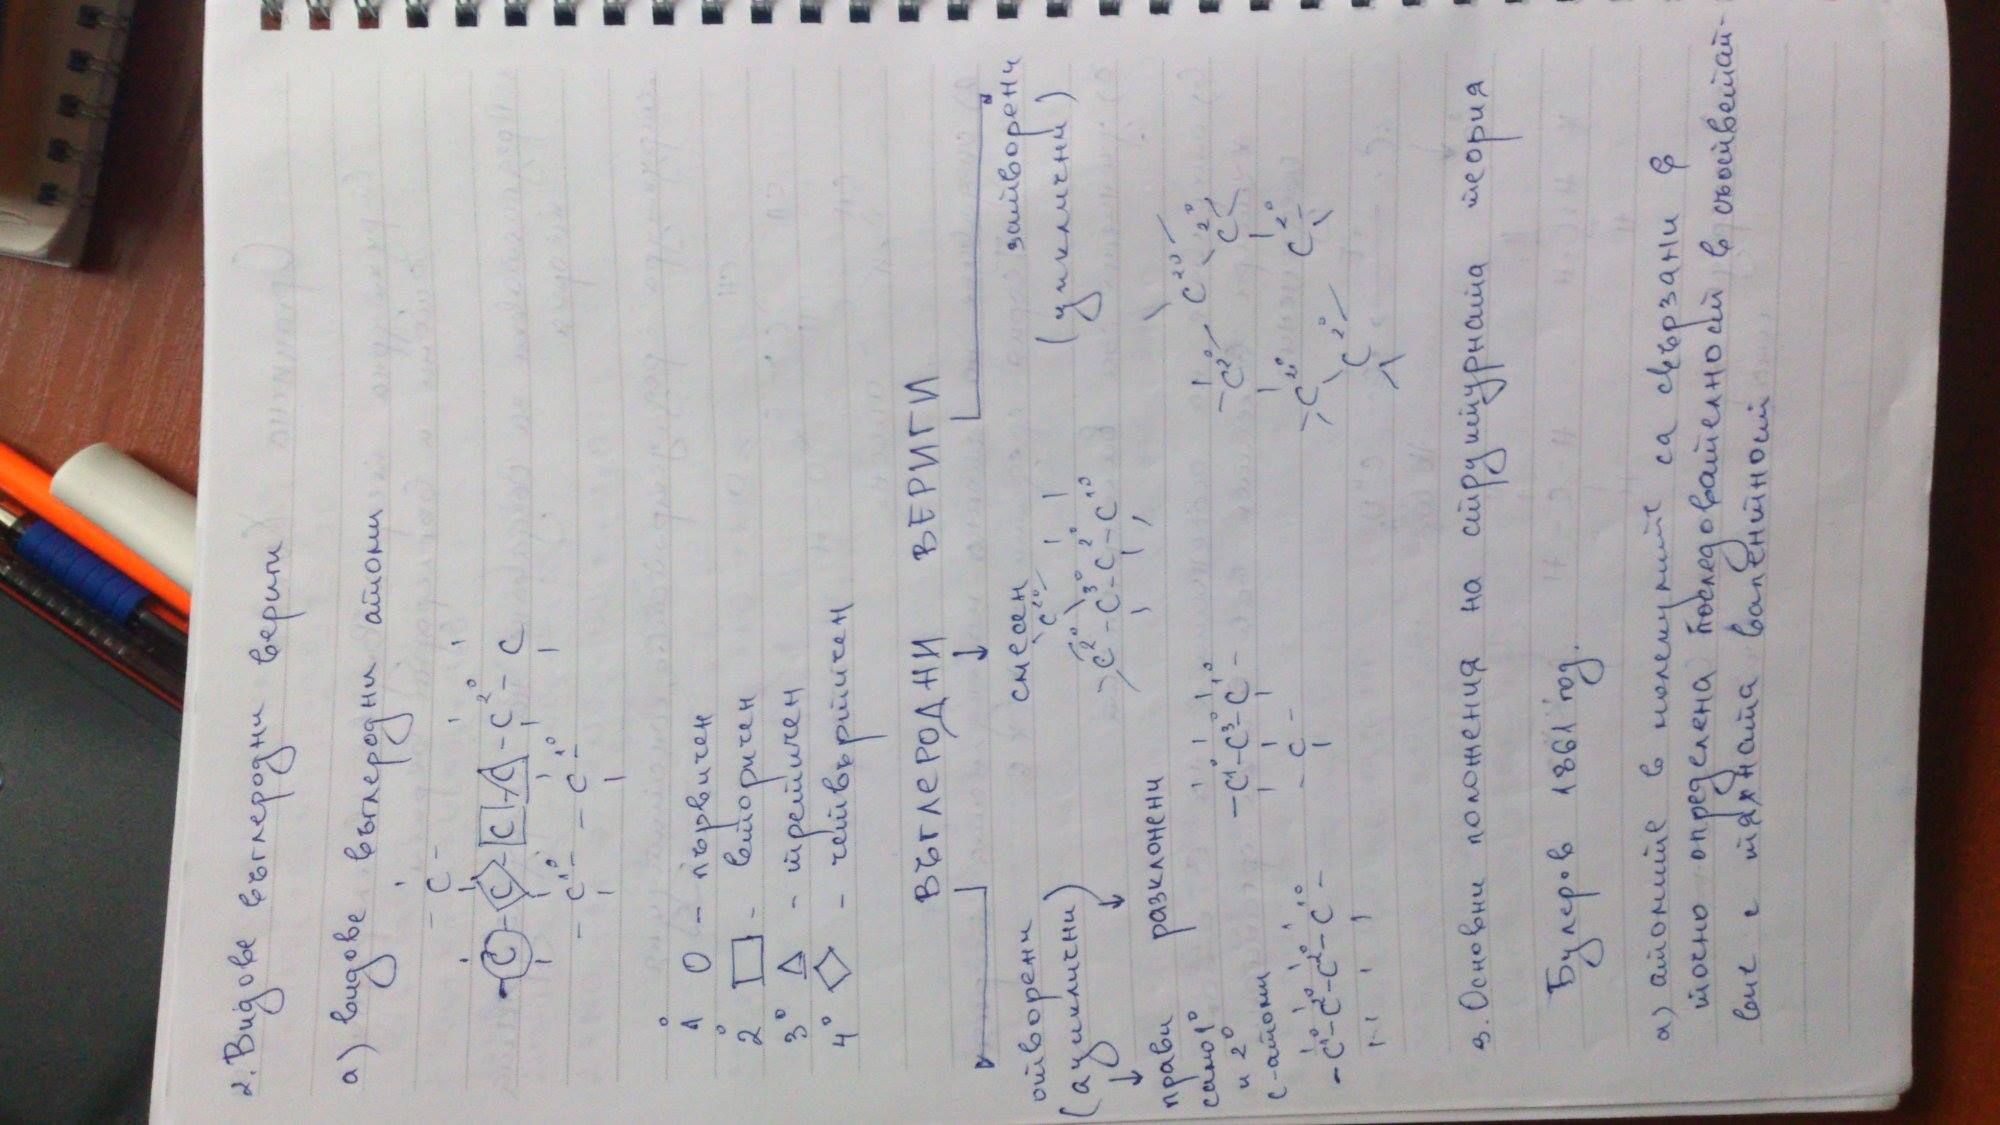 2. Видове въглеродни вериги
а) видове въглеродни атоми
- C -
C - C - C - C - C² ⁰ - C
- C¹ ⁰ - - C¹ ⁰ -
1⁰ ○ - първичен
2⁰ □ - вторичен
3⁰ △ - третичен
4⁰ ◇ - четвъртичен
ВЪГЛЕРОДНИ ВЕРИГИ
отворени смесен затворени
(ациклични) (циклични)
прави разклонени
само 1⁰
и 2⁰
C-атоми
- C¹⁰ - C²⁰ - C²⁰ - C¹⁰ -
- C¹⁰ - C³⁰ - C¹⁰ -
- C -
C²⁰
C²⁰ - C³⁰ - C²⁰ - C¹⁰
C²⁰ C²⁰ C²⁰
C²⁰ C²⁰ C²⁰
3. Основни положения на структурната теория
Бутлеров 1861 год.
а) атомите в молекулите са свързани в
точно определена последователност в съответст-
вие с тяхната валентност